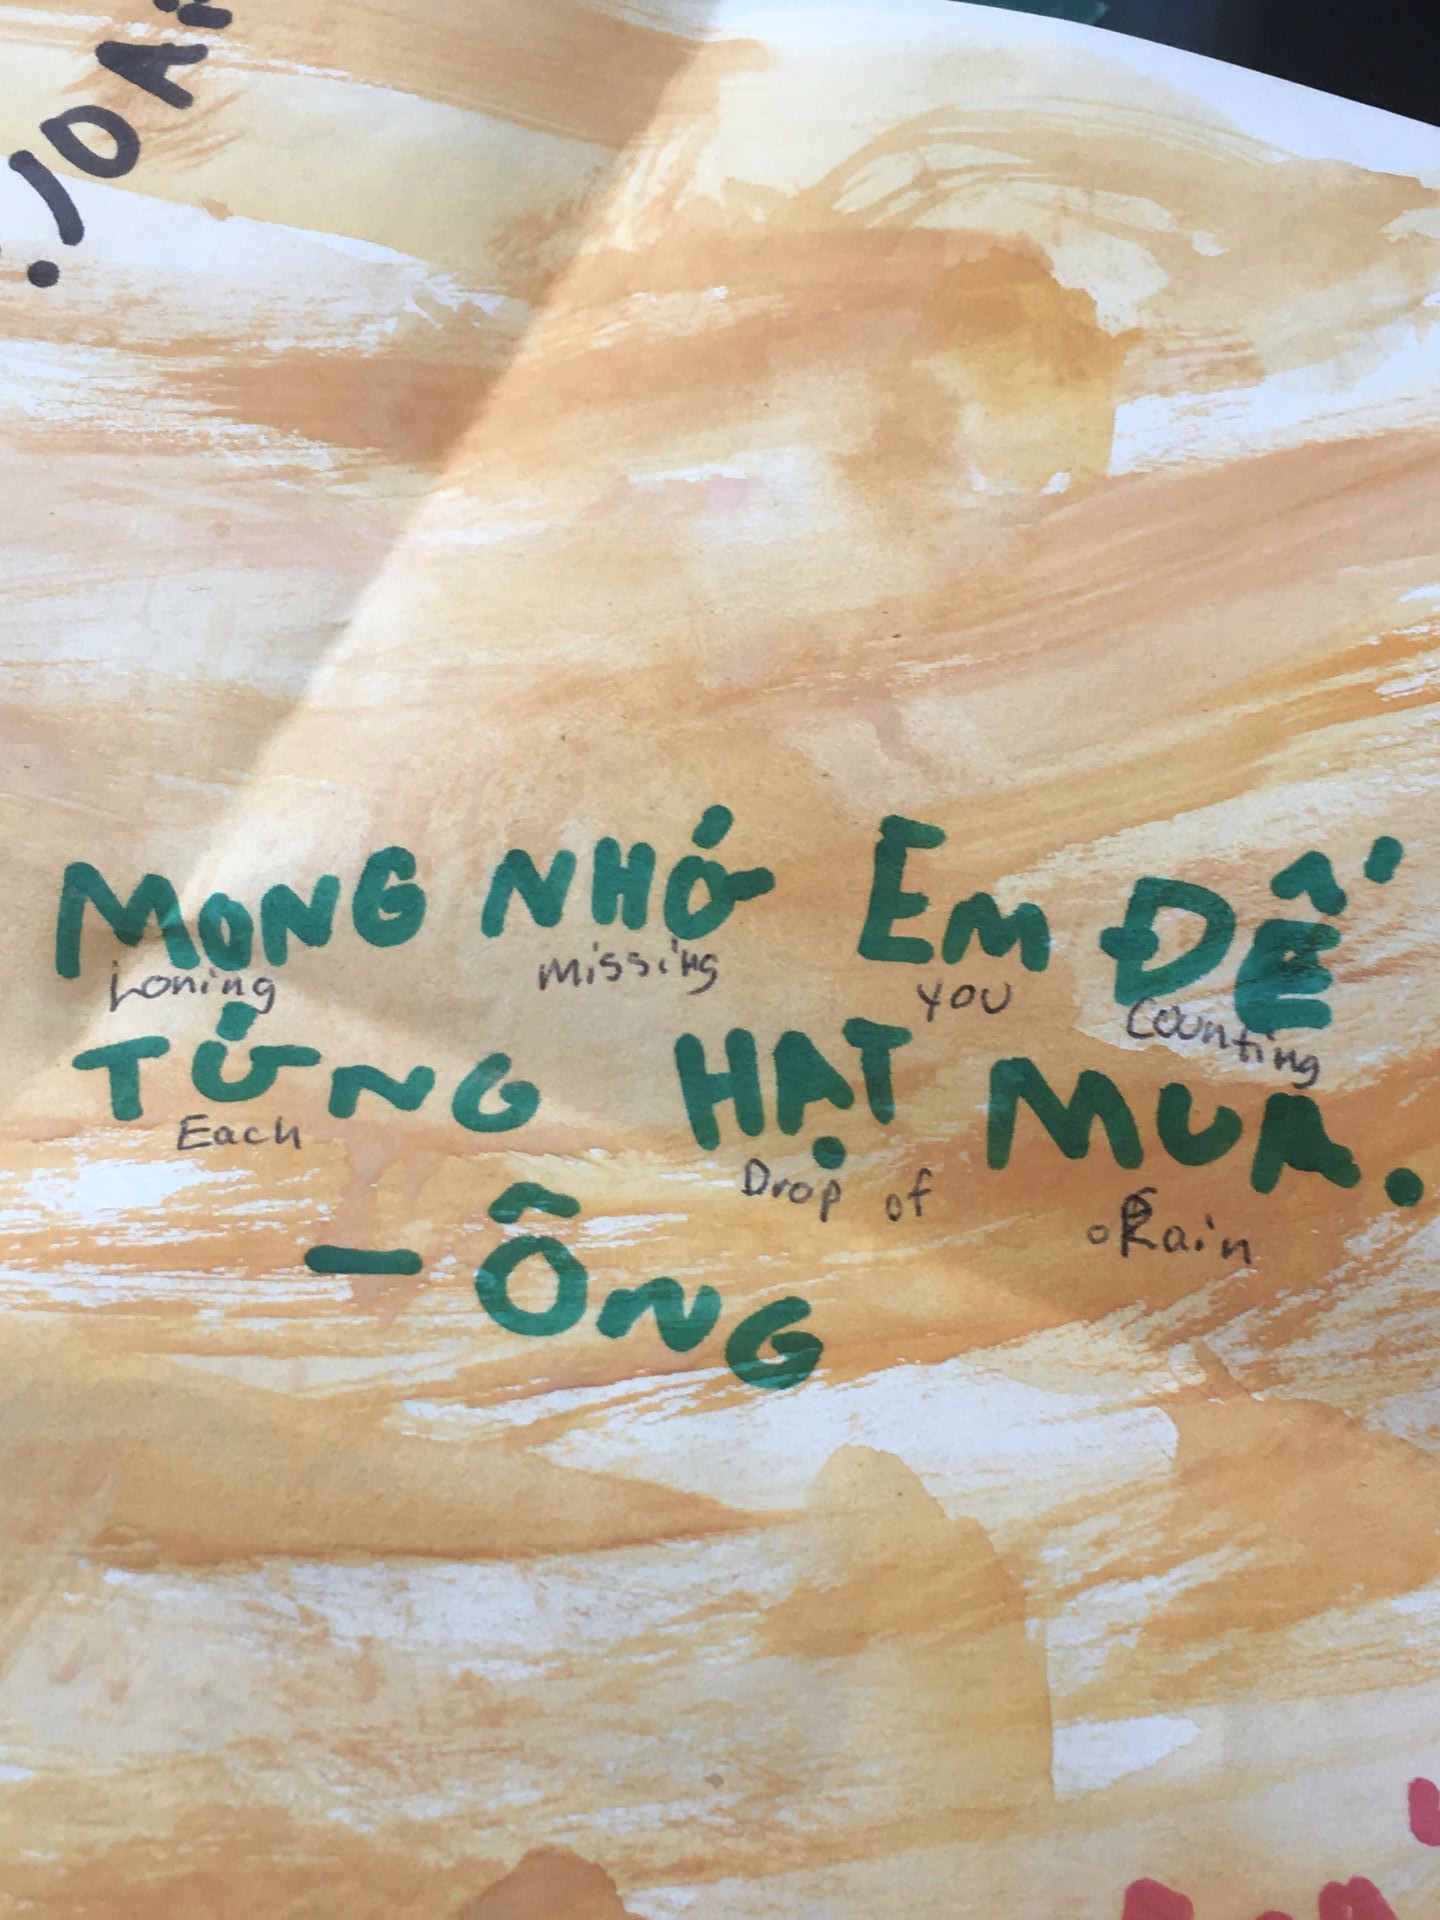 MONG NHỚ EM ĐẾ
Loning missing you Counting
TỪNG HẠT MƯA.
Each Drop of Rain
- ÔNG